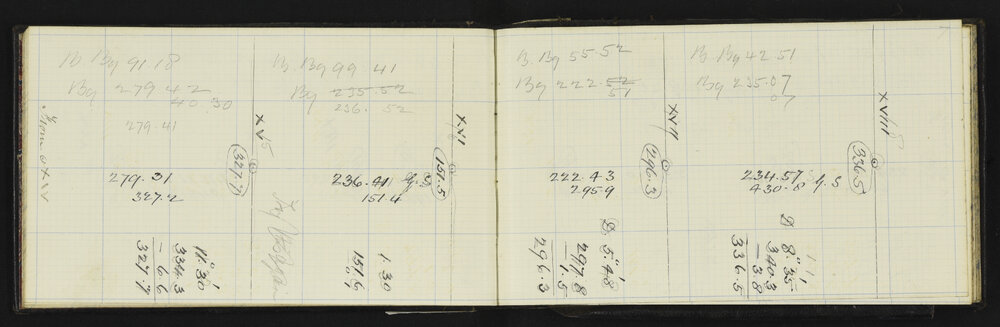 B. Bg 91.18
Bg 279 42
40 30
279.41
From oxiv
XV
327.7
279.31
327.2
11° 30'
334.3
- 6 6
327.7
B. Bg 99.41
Bg 235.52
236. 52
XVI
151.5
236.41 G.S
151.4
1.30
151.6
B. Bg 55.52
Bg 222 52
51
XVII
296.3
222.43
295.9
D. 5° 48'
297.8
- 1.5
296.3
B. Bg 42 51
Bg 235.07
07
XVIII
336.5
234.57 G.S
430.8
D 8° 35'
340.3
- 3 8
336.5